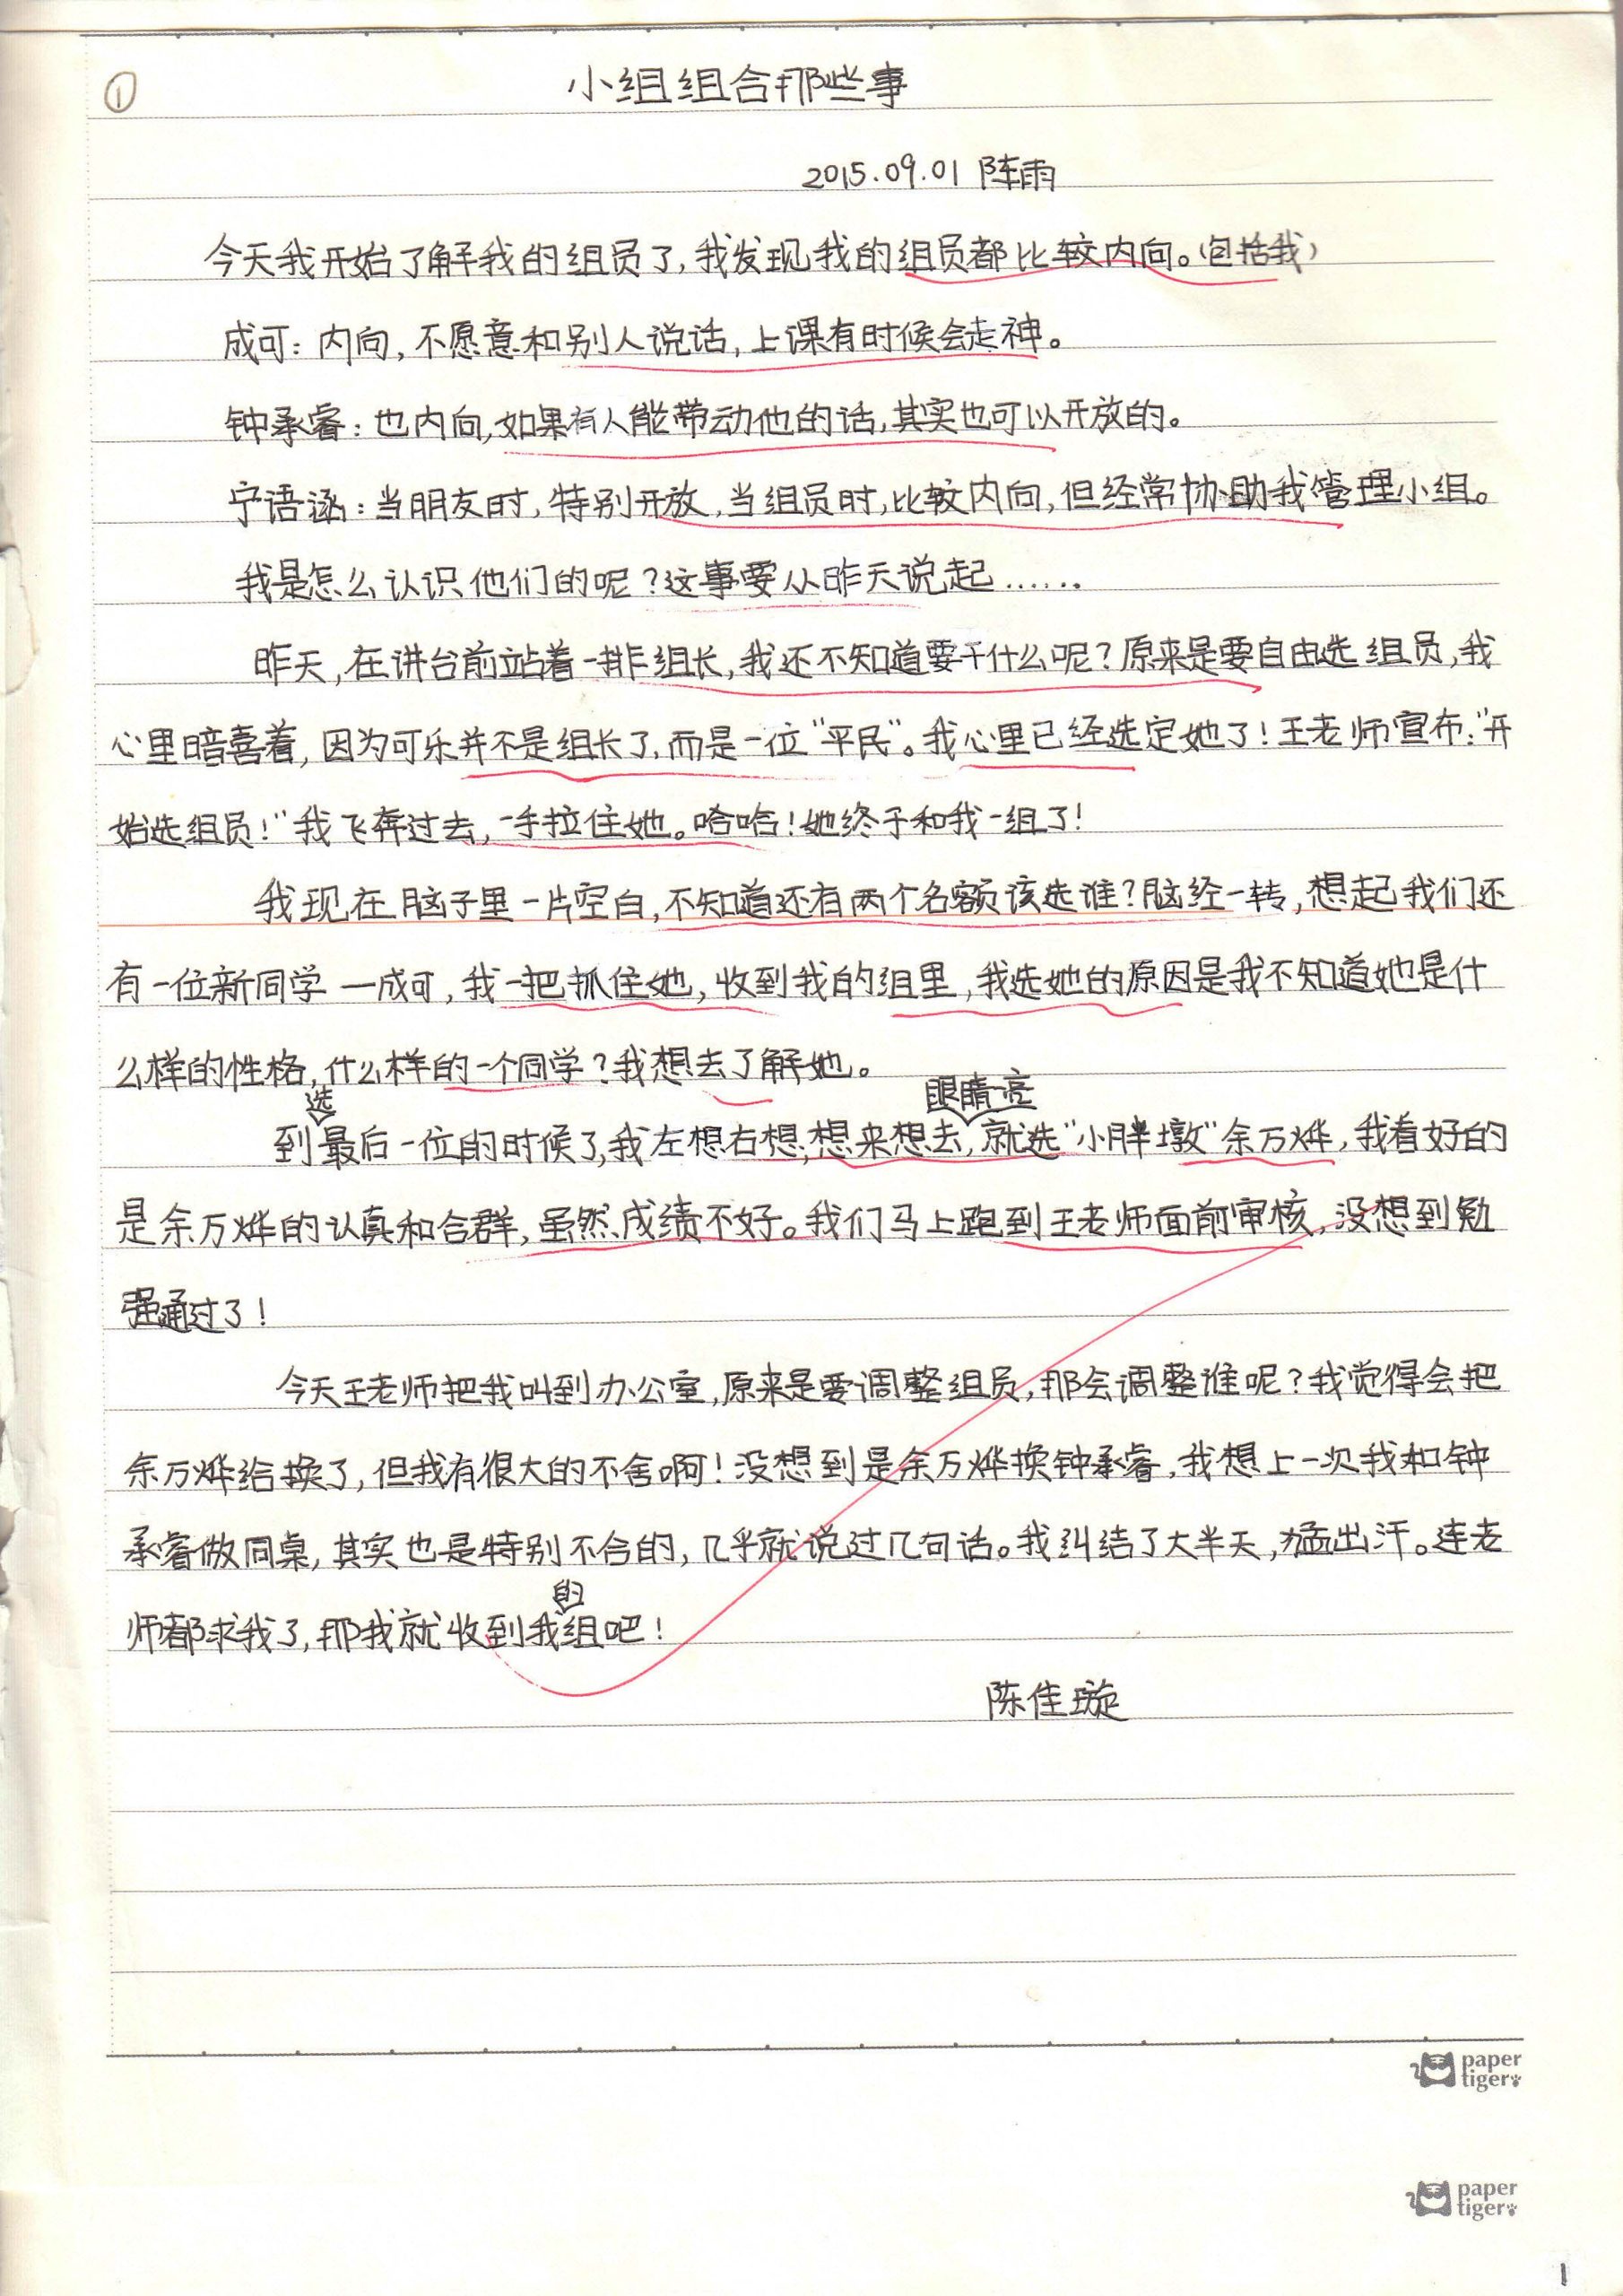 ①
小组组合那些事
2015.09.01 阵雨
今天我开始了解我的组员了,我发现我的组员都比较内向。(包括我)
成可:内向,不愿意和别人说话,上课有时候会走神。
钟承睿:也内向,如果有人能带动他的话,其实也可以开放的。
宁语涵:当朋友时,特别开放,当组员时,比较内向,但经常协助我管理小组。
我是怎么认识他们的呢?这事要从昨天说起……
昨天,在讲台前站着一排组长,我还不知道要干什么呢?原来是要自由选组员,我
心里暗喜着,因为可乐并不是组长了,而是一位“平民”。我心里已经选定她了!王老师宣布:“开
始选组员!”我飞奔过去,一手拉住她。哈哈!她终于和我一组了!
我现在脑子里一片空白,不知道还有两个名额该选谁?脑经一转,想起我们还
有一位新同学—成可,我一把抓住她,收到我的组里,我选她的原因是我不知道她是什
么样的性格,什么样的一个同学?我想去了解她。
到选最后一位的时候了,我左想右想,想来想去,眼睛一亮就选“小胖墩”余万烨,我看好的
是余万烨的认真和合群,虽然成绩不好。我们马上跑到王老师面前审核,没想到勉
强通过了!
今天王老师把我叫到办公室,原来是要调整组员,那会调整谁呢?我觉得会把
余万烨给换了,但我有很大的不舍啊!没想到是余万烨换钟承睿,我想上一次我和钟
承睿做同桌,其实也是特别不合的,几乎就说过几句话。我纠结了大半天,猛出汗。连老
师都求我了,那我就收到我的组吧!
陈佳璇
paper
tiger
paper
tiger
1